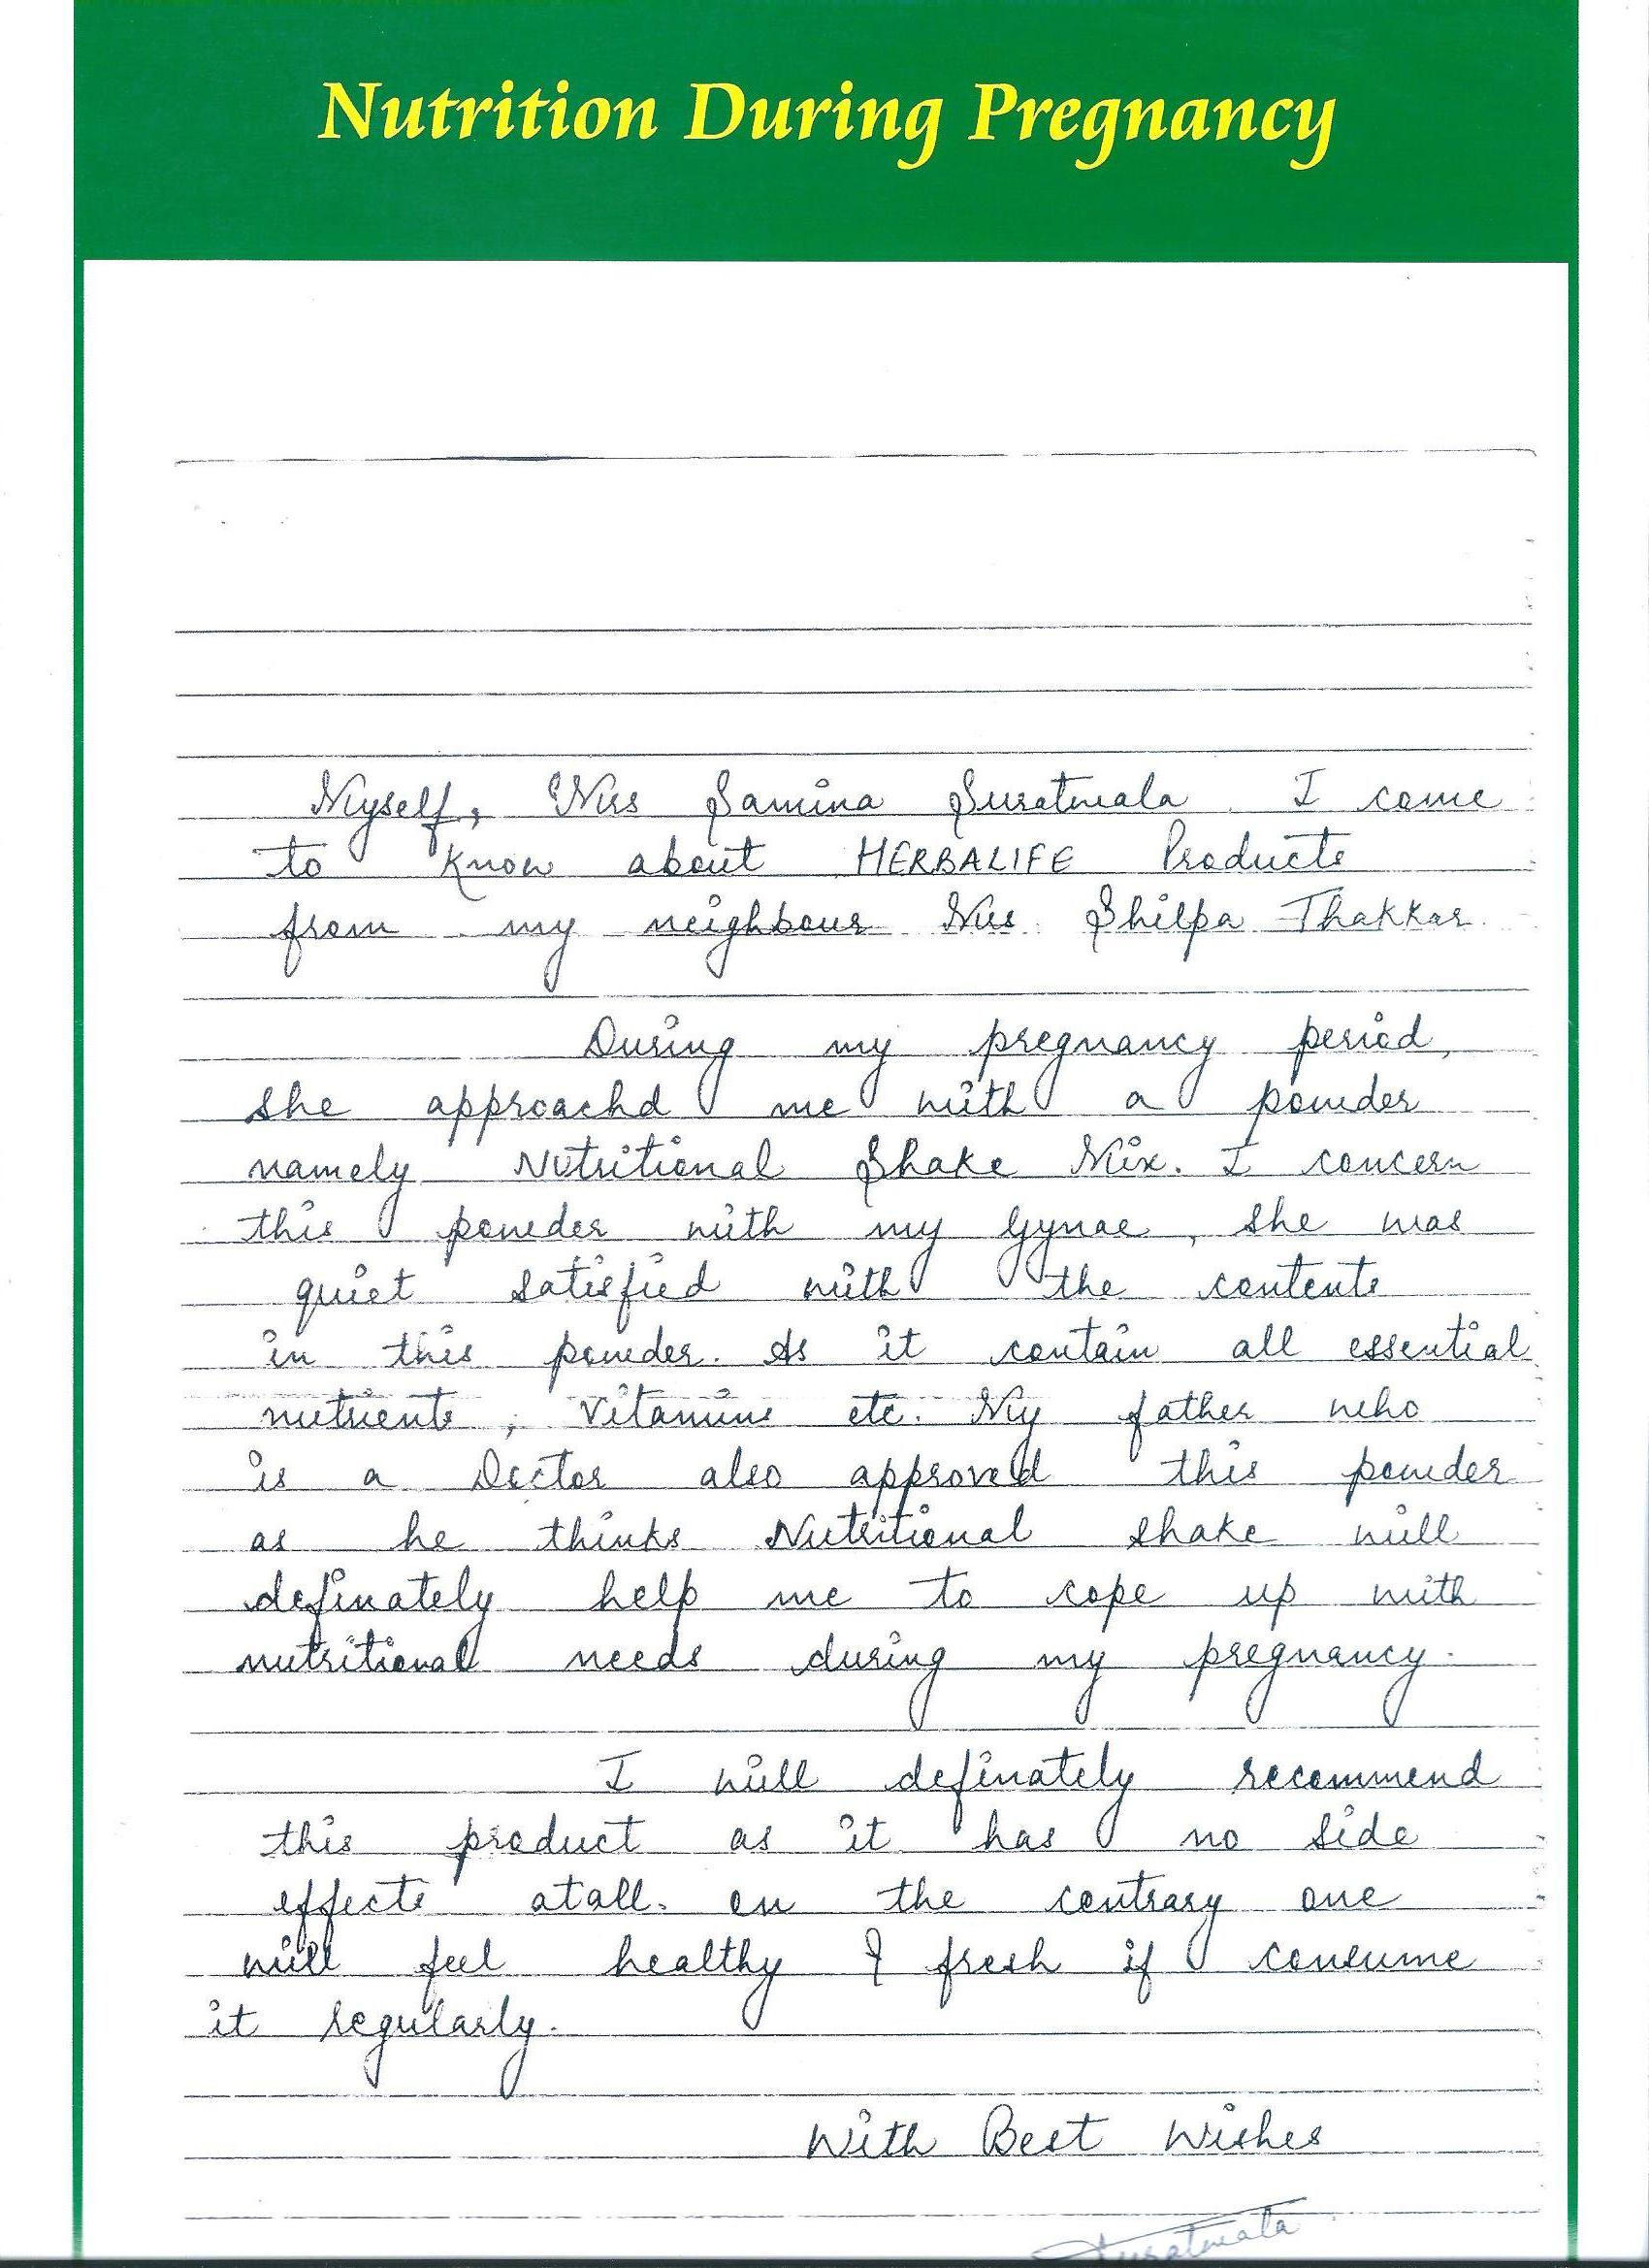 Nutrition During Pregnancy
Myself, Mrs Samina Suratwala. I come
to know about HERBALIFE Products
from my neighbour Mrs. Shilpa Thakkar.
During my pregnancy period,
she approachd me with a powder
namely Nutritional Shake Mix. I concern
this powder with my Gynae, she was
quiet satisfied with the contents
in this powder. As it contain all essential
nutrients, Vitamins etc. My father who
is a Doctor also approved this powder
as he thinks Nutritional shake will
definately help me to cope up with
nutritional needs during my pregnancy.
I will definately recommend
this product as it has no side
effects atall. on the contrary one
will feel healthy & fresh if consume
it regularly.
With Best Wishes
Suratwala